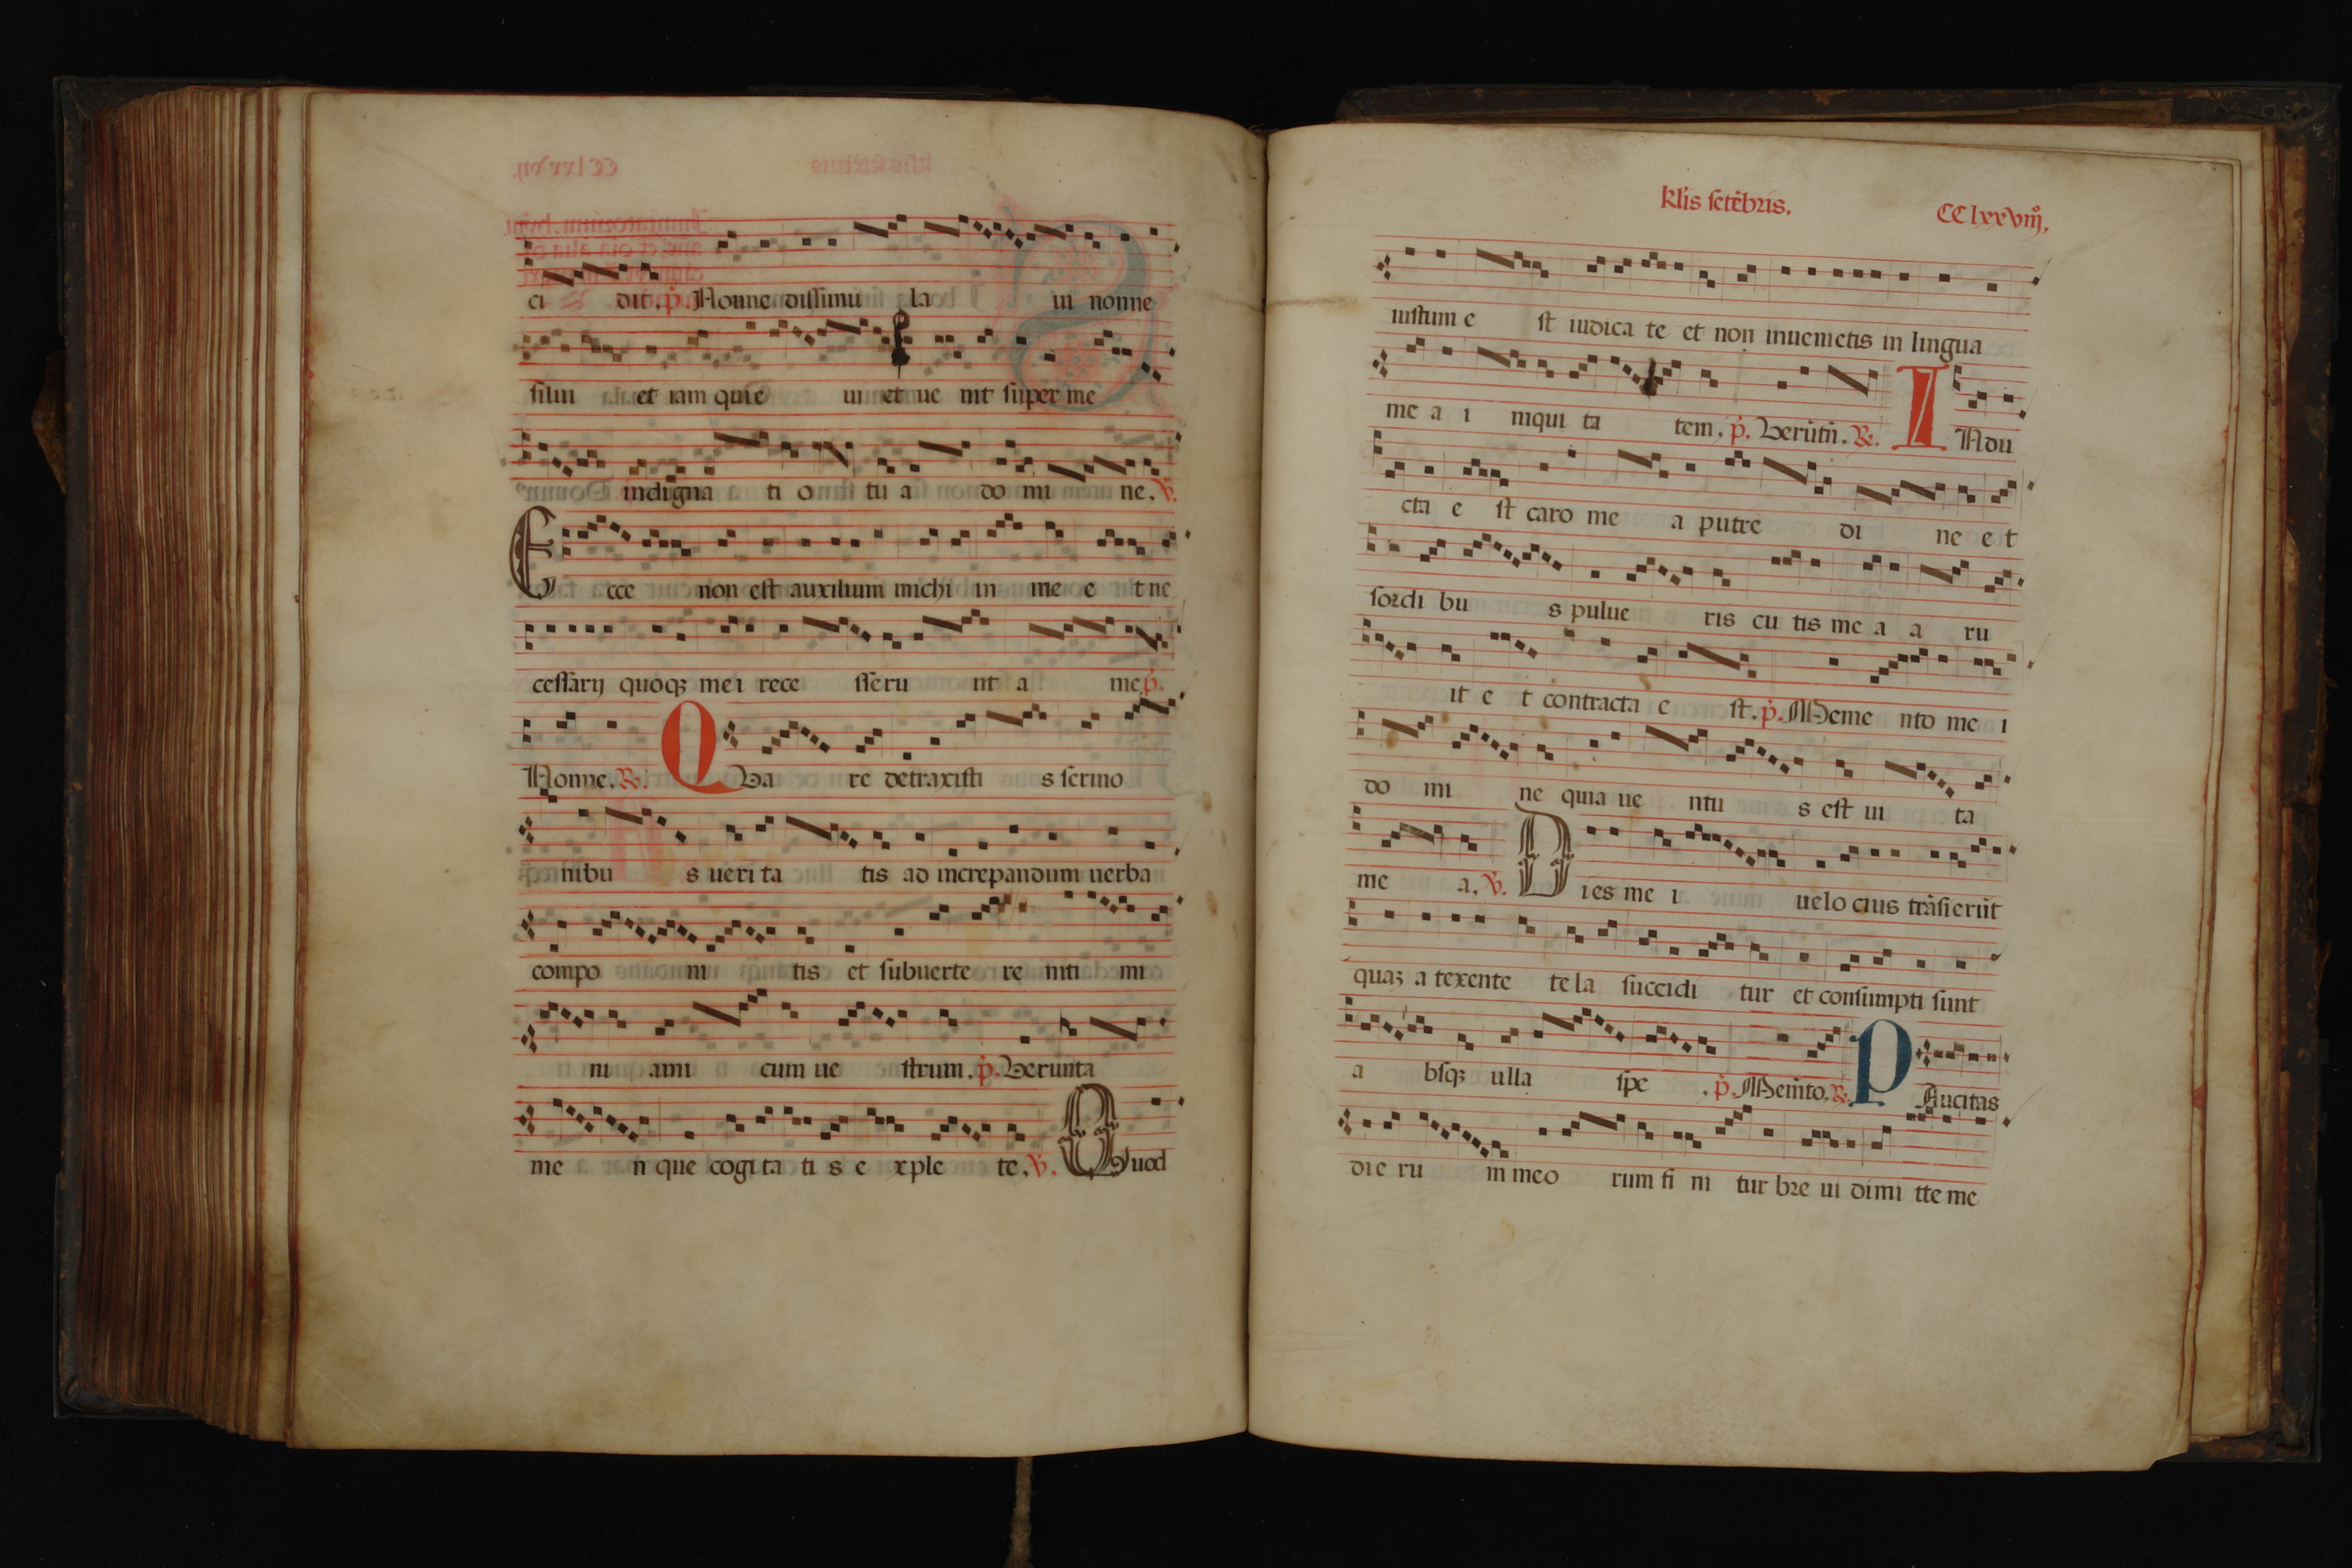 ci dit. p̉. Nonne dissimu la ui nonne
silui et iam quie ui et ue nit super me
indigna ti o tu a do mi ne. v̉.
Ecce non est auxilium michi in me e t ne
cessarij quoqꝫ me i rece sseru nt a me p̉.
Nonne. ꝶ. Qua re detraxisti s sermo
nibu s ueri ta tis ad increpandum uerba
compo ni tis et subuerte re niti mi
ni ami cum ue strum. p̉. Verunta
me n que cogi ta ti s e xple te. v̉. Quod
kl̄is setēbris. CClxxviijº.
iustum e st iudica te et non inuenietis in lingua
me a i niqui ta tem. p̉. Verūtn̄. ꝶ. INdu
cta e st caro me a putre di ne e t
sordi bu s pulue ris cu tis me a a ru
it e t contracta e st. p̉. Meme nto me i
do mi ne quia ue ntu s est ui ta
me a. v̉. Dies me i uelo cius trāsierūt
quaꝫ a texente te la succidi tur et consumpti sunt
a bsqꝫ ulla spe . p̉. Mem̄to. ꝶ. PAucitas
die ru m meo rum fi ni tur bre ui dimi tte me